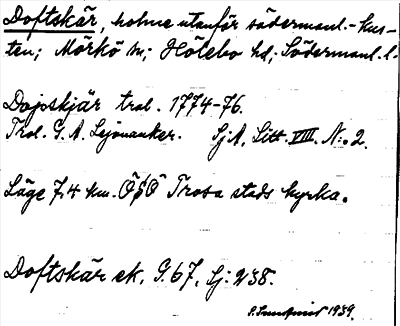 Doftskär, holme utanför södermanl.-kus-
ten; Mörkö sn; Hölebo hd; Södermanl. l.
Dojpskjär tral. 1774-76.
Trol. G. A. Lejonanker. Sj A, Litt. VIII. N:o 2.
Läge 7,4 km. ÖSÖ Trosa stads kyrka.
Doftskär ek. G. 67, Sj: 238.
1939.